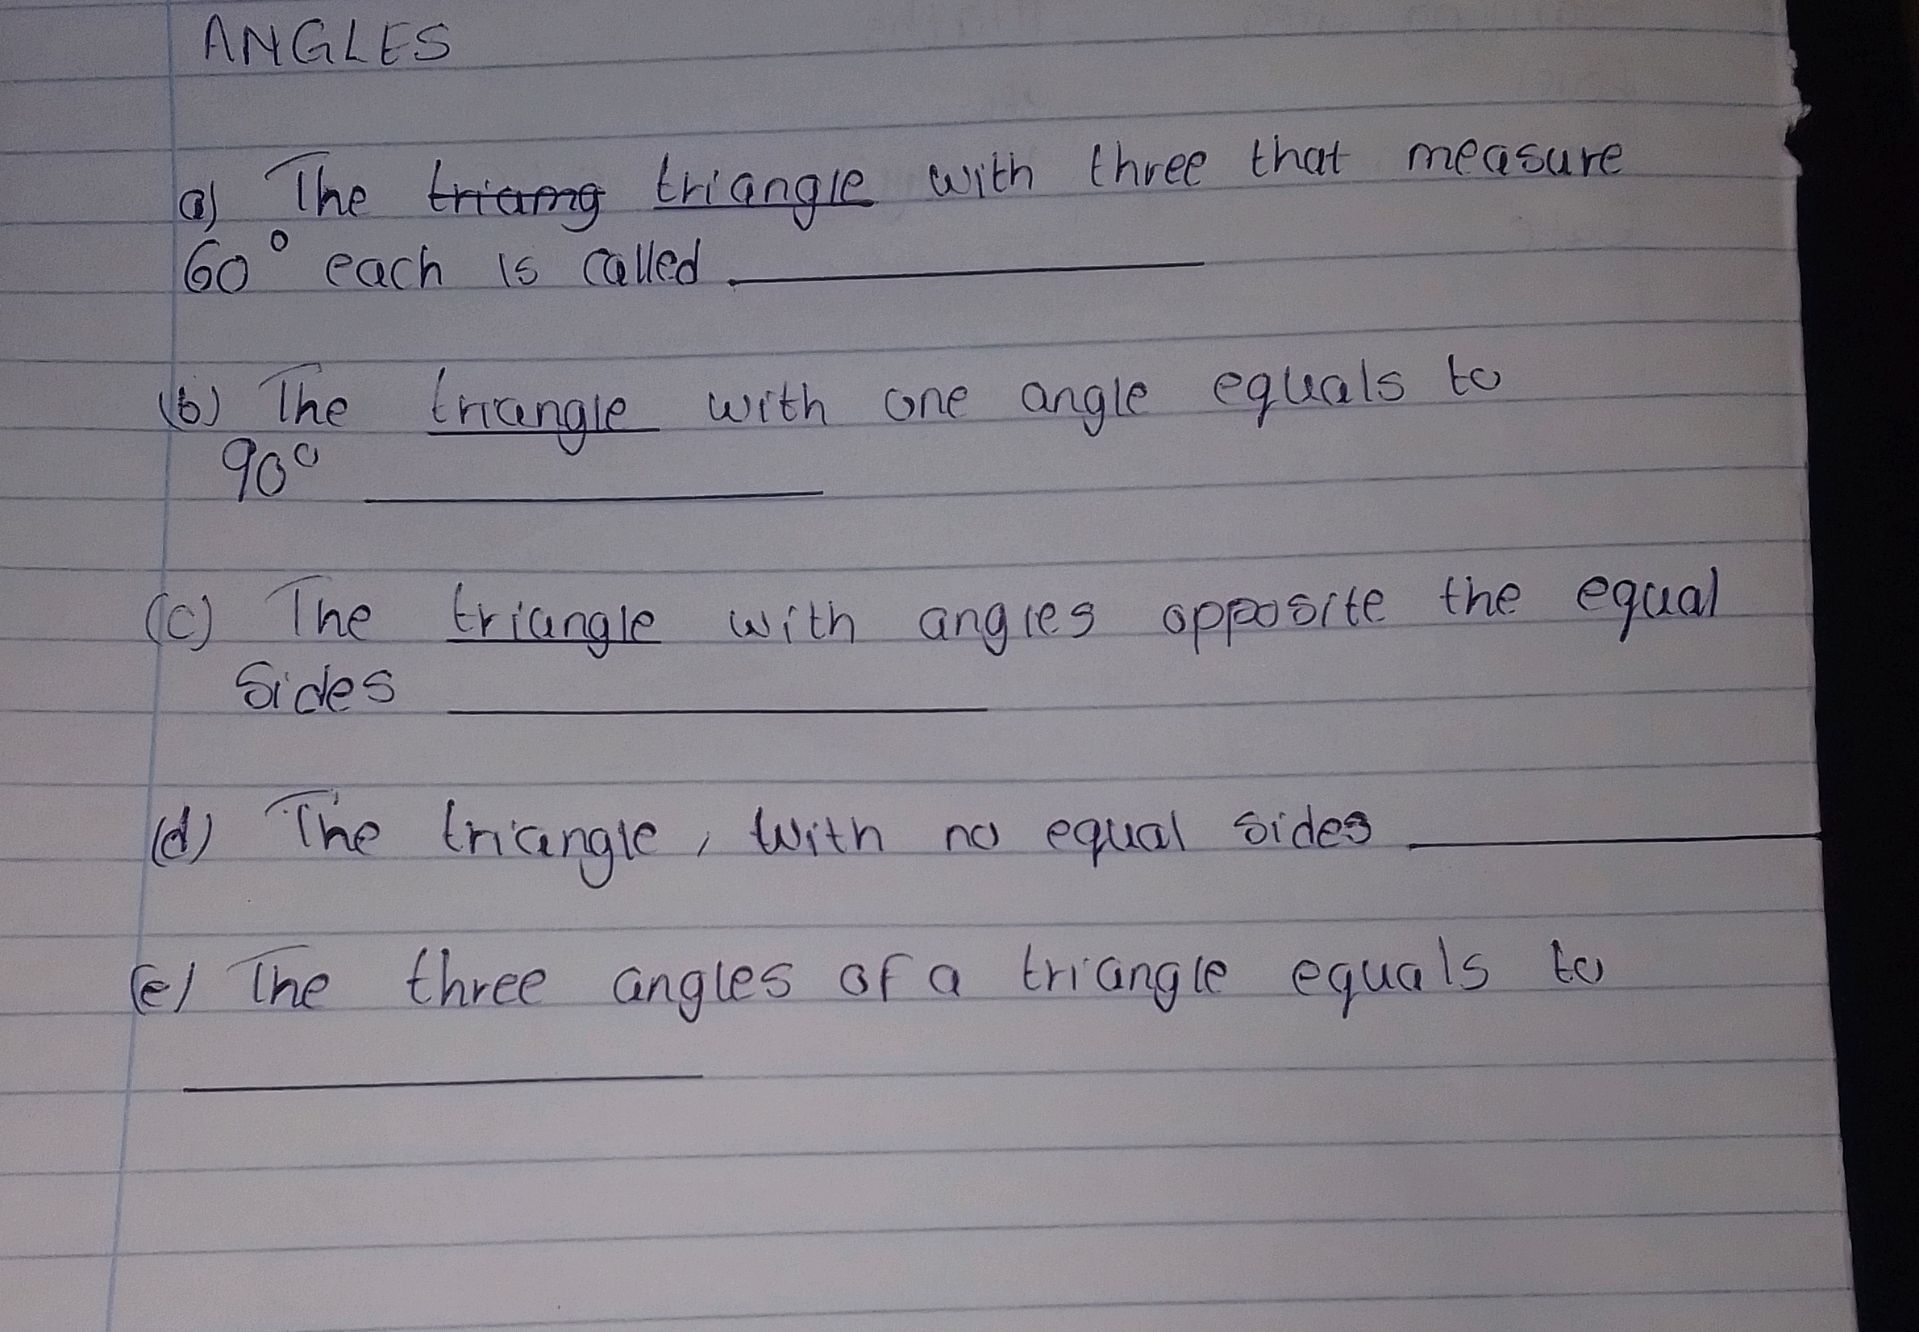 ANGLES
a) The triamg triangle with three that measure
60° each is called
(b) The triangle with one angle equals to
90°
(c) The triangle with angles opposite the equal
Sides
(d) The triangle, with no equal sides
(e) The three angles of a triangle equals to